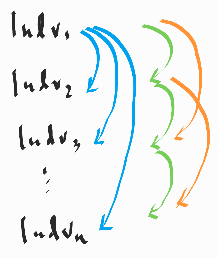 Indv1
Indv2
Indv3
⋮
Indvn